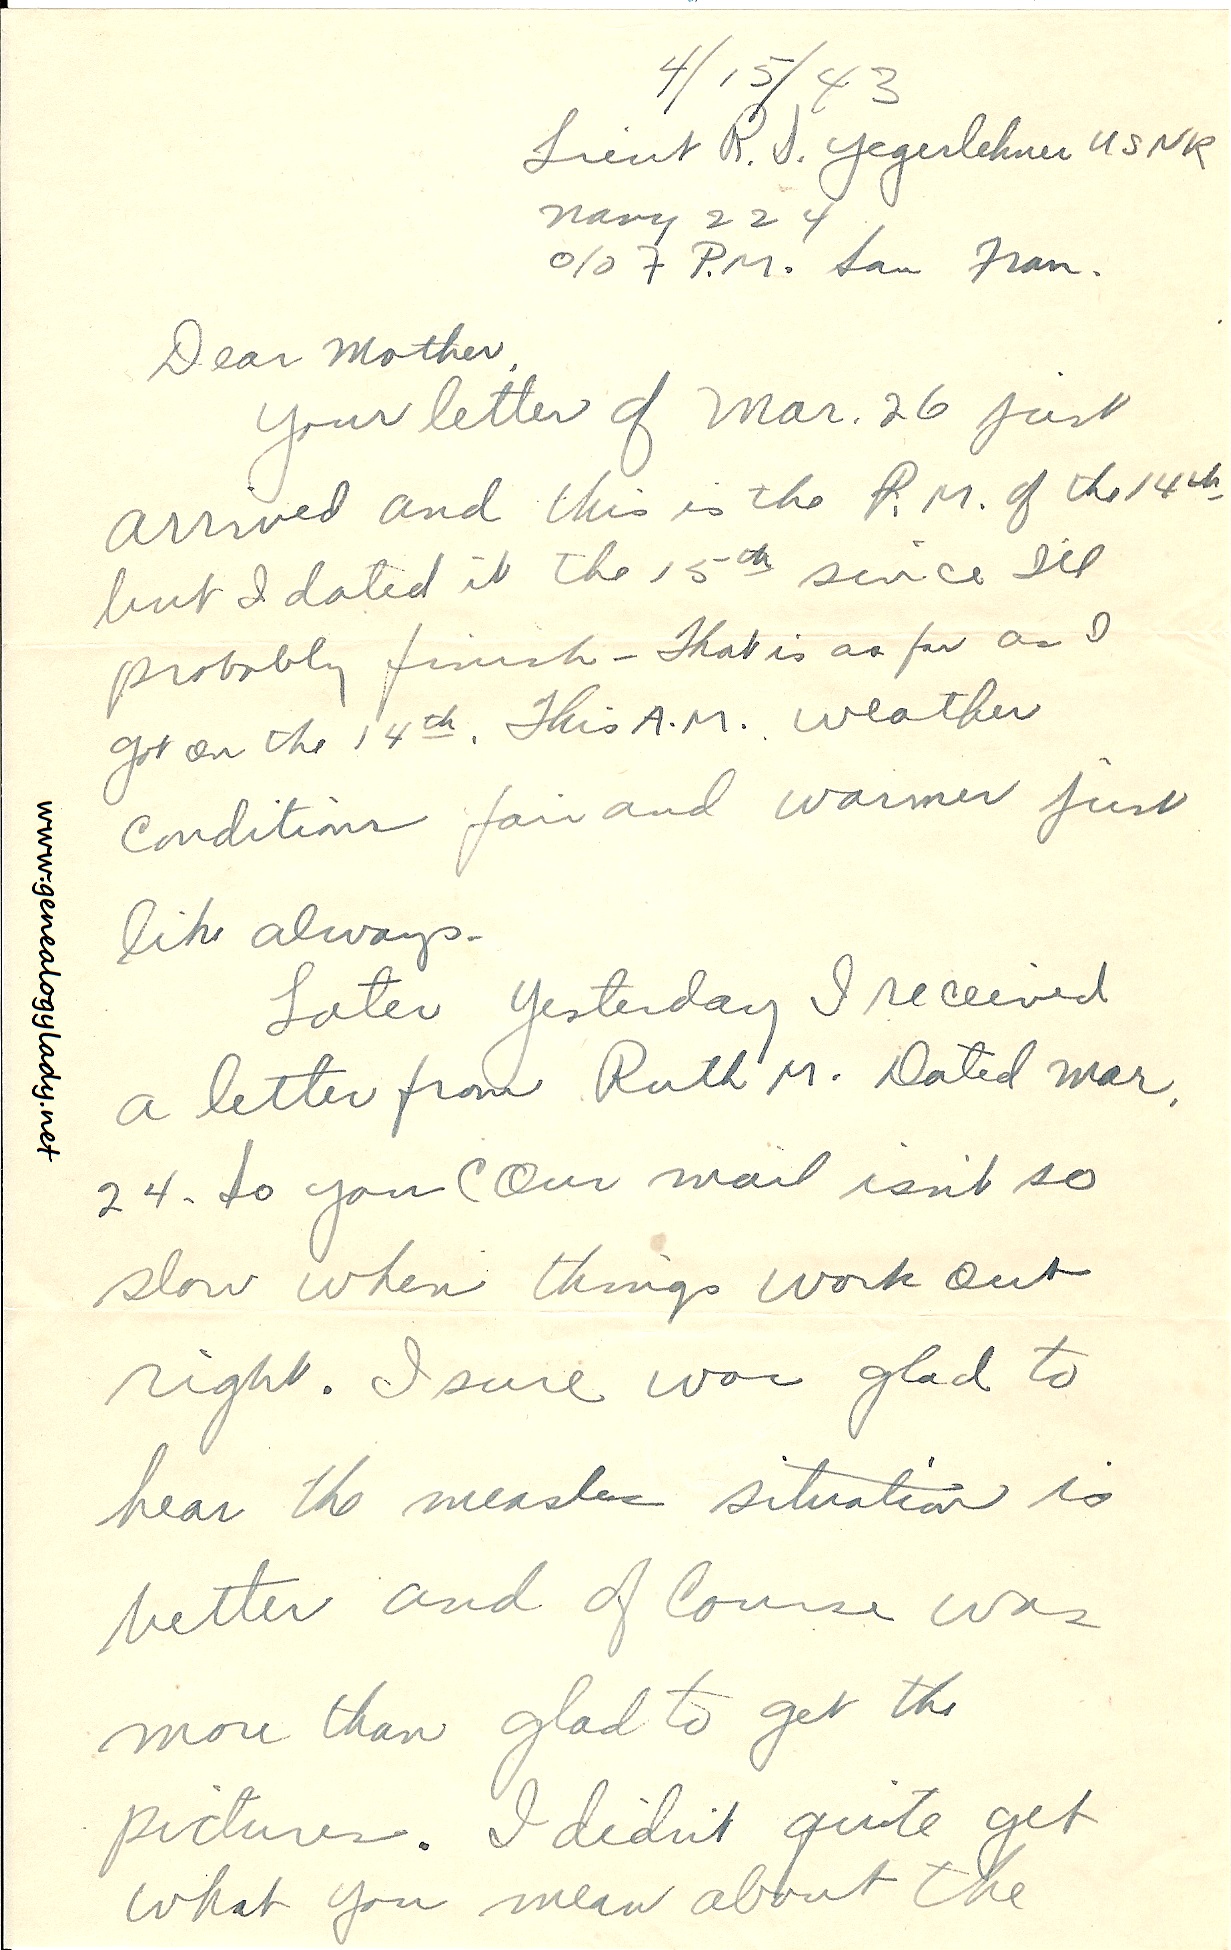 4/15/43
Lieut R. I. Yegerlehner USNR
Navy 224
c/o F P.M. San Fran.
Dear Mother,
Your letter of Mar. 26 just
arrived and this is the P.M. of the 14th
but I dated it the 15th since I'll
probably finish - That is as far as I
got on the 14th. This A.M. weather
conditions fair and warmer just
like always -
Later Yesterday I received
a letter from Ruth M. Dated Mar.
24. So you C Our mail isn't so
slow when things work out
right. I sure was glad to
hear the measles situation is
better and of course was
more than glad to get the
pictures. I didn't quite get
what you mean about the
www.genealogylady.net